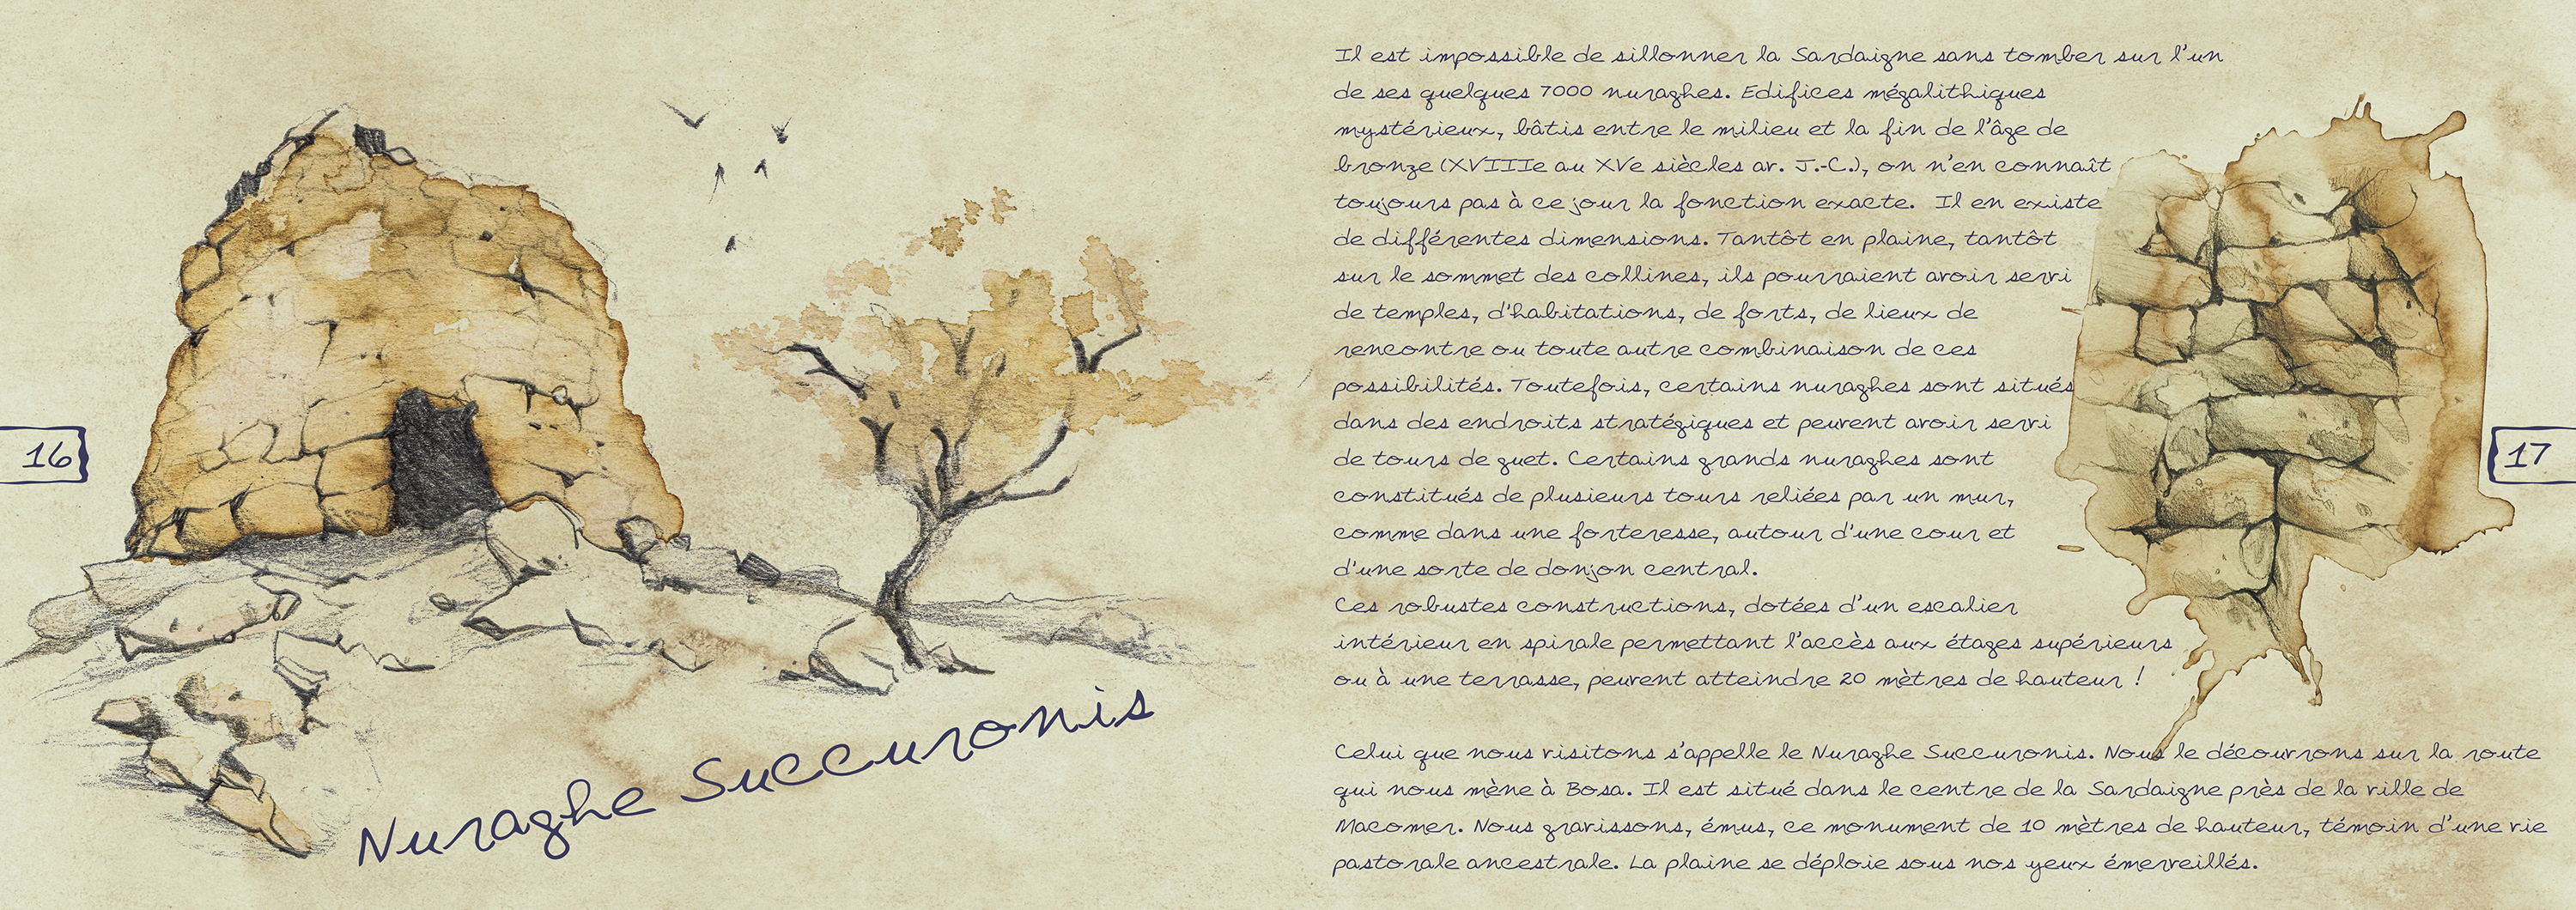 16
Nuraghe Succuronis
Il est impossible de sillonner la Sardaigne sans tomber sur l'un
de ses quelques 7000 nuraghes. Edifices mégalithiques
mystérieux, bâtis entre le milieu et la fin de l'âge de
bronze (XVIIIe au XVe siècles av. J.-C.), on n'en connaît
toujours pas à ce jour la fonction exacte. Il en existe
de différentes dimensions. Tantôt en plaine, tantôt
sur le sommet des collines, ils pourraient avoir servi
de temples, d'habitations, de forts, de lieux de
rencontre ou toute autre combinaison de ces
possibilités. Toutefois, certains nuraghes sont situés
dans des endroits stratégiques et peuvent avoir servi
de tours de guet. Certains grands nuraghes sont
constitués de plusieurs tours reliées par un mur,
comme dans une forteresse, autour d'une cour et
d'une sorte de donjon central.
Ces robustes constructions, dotées d'un escalier
intérieur en spirale permettant l'accès aux étages supérieurs
ou à une terrasse, peuvent atteindre 20 mètres de hauteur !
Celui que nous visitons s'appelle le Nuraghe Succuronis. Nous le découvrons sur la route
qui nous mène à Bosa. Il est situé dans le centre de la Sardaigne près de la ville de
Macomer. Nous gravissons, émus, ce monument de 10 mètres de hauteur, témoin d'une vie
pastorale ancestrale. La plaine se déploie sous nos yeux émerveillés.
17